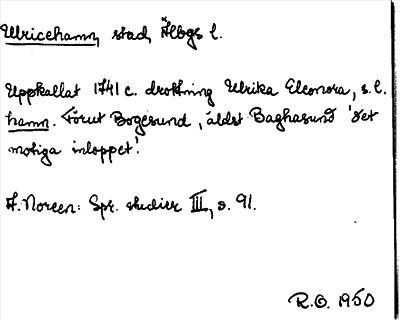 Ulricehamn, stad, Älvbgs l.
Uppkallat 1741 e. drottning Ulrika Eleonora, s.l.
hamn. Förut Bogesund, äldst Baghasund 'det
motiga inloppet'.
A. Noreen: Spr. studier III, s. 91.
R.O. 1950